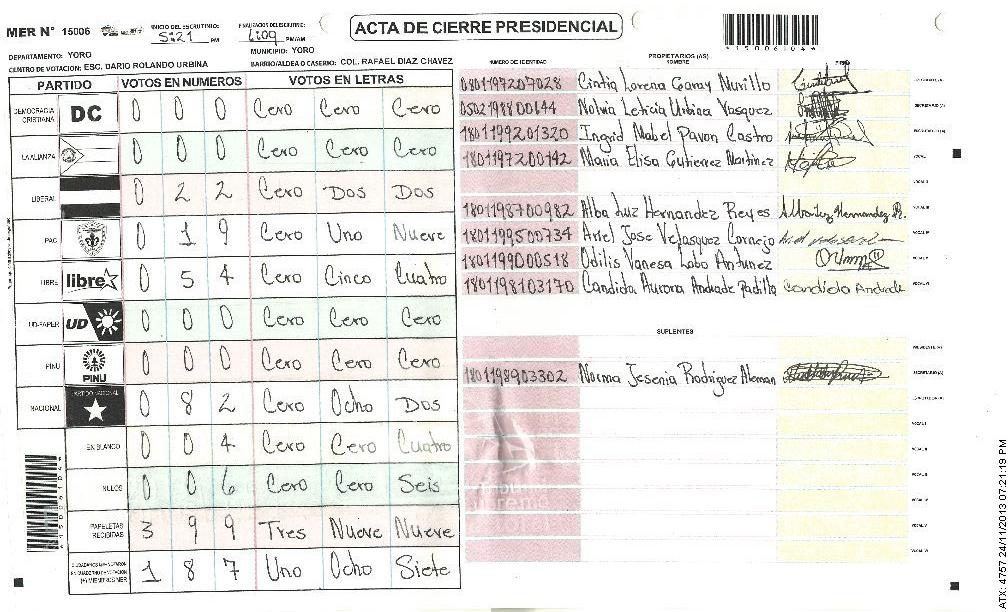 ACTA DE CIERRE PRESIDENCIAL
MER N° 15006
INICIO DEL ESCRUTINIO: 5:21 PM
FINALIZACION DEL ESCRUTINIO: 6:09 PM/AM
*15006104*
DEPARTAMENTO: YORO
MUNICIPIO: YORO
CENTRO DE VOTACION: ESC. DARIO ROLANDO URBINA
BARRIO/ALDEA O CASERIO: COL. RAFAEL DIAZ CHAVEZ
PARTIDO VOTOS EN NUMEROS VOTOS EN LETRAS
DEMOCRACIA CRISTIANA DC 0 0 0 Cero Cero Cero
LA ALIANZA 0 0 0 Cero Cero Cero
LIBERAL 0 2 2 Cero Dos Dos
PAC 0 1 9 Cero Uno Nueve
LIBRE libre 0 5 4 Cero Cinco Cuatro
UD-FAPER UD 0 0 0 Cero Cero Cero
PINU PINU 0 0 0 Cero Cero Cero
NACIONAL 0 8 2 Cero Ocho Dos
EN BLANCO 0 0 4 Cero Cero Cuatro
NULOS 0 0 6 Cero Cero Seis
PAPELETAS RECIBIDAS 3 9 9 Tres Nueve Nueve
1 8 7 Uno Ocho Siete
PROPIETARIOS (AS)
NUMERO DE IDENTIDAD NOMBRE FIRMA
0801197207028 Cintia Lorena Garay Murillo
0502198800144 Nolvia Leticia Urbina Vasquez SECRETARIO (A)
1801199201320 Ingrid Mabel Pavon Castro
1801197200142 Maria Elisa Gutierrez Martinez
1801198700982 Alba Luz Hernandez Reyes
1801199500734 Ariel Jose Velasquez Cornejo
1801199000518 Odilis Vanesa Lobo Antunez
1801198103170 Candida Aurora Andrade Padilla Candida Andrade
SUPLENTES
1801198903302 Norma Jesenia Rodriguez Aleman SECRETARIO (A)
ATX: 4757 24/11/2013 07:21:19 PM